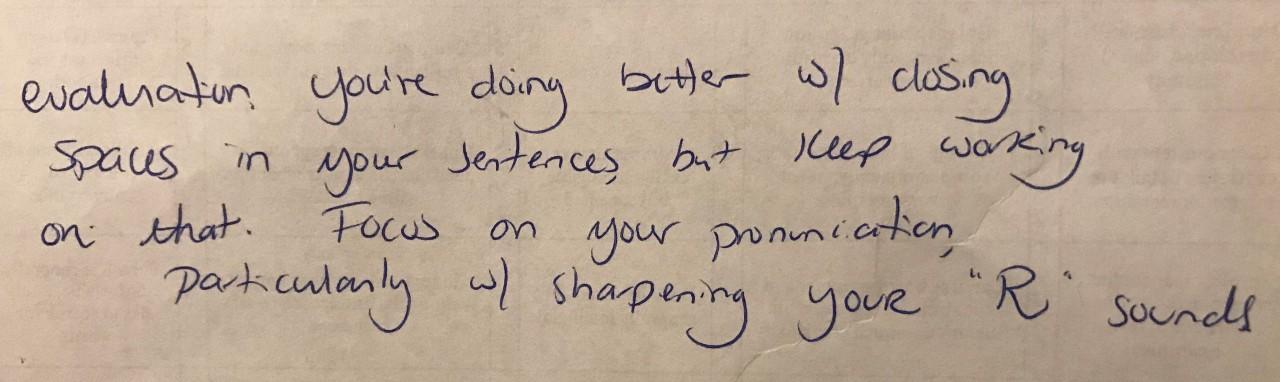 evaluation. You're doing better w/ closing
spaces in your sentences, but keep working
on that. Focus on your pronunciation,
particularly w/ sharpening your "R" sounds